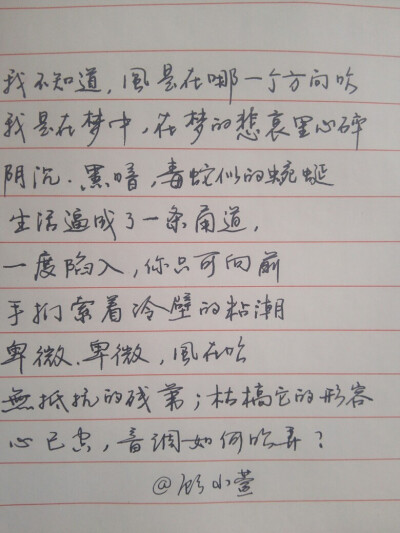 我不知道,風是在哪一个方向吹
我是在梦中,在梦的悲哀里心碎
阴沉.黑暗,毒蛇似的蜿蜒
生活逼成了一条甬道,
一度陷入,你只可向前
手扪索着冷壁的粘潮
卑微.卑微,風在吹
無抵抗的残葦;枯槁它的形容
心已空,音调如何吹弄?
@顾小萱